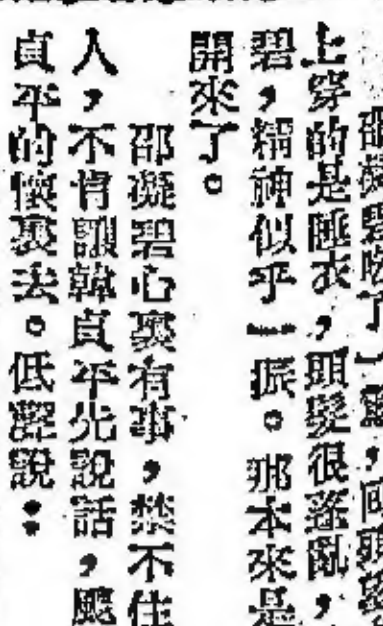 邵凝碧吃了一驚，回頭
上穿的是睡衣，頭髮很蓬亂，
碧，精神似乎一振。那本來是
開來了。
邵凝碧心裏有事，禁不住
人，不肯讓韓貞平先說話，颼
貞平的懷裏去。低聲說：